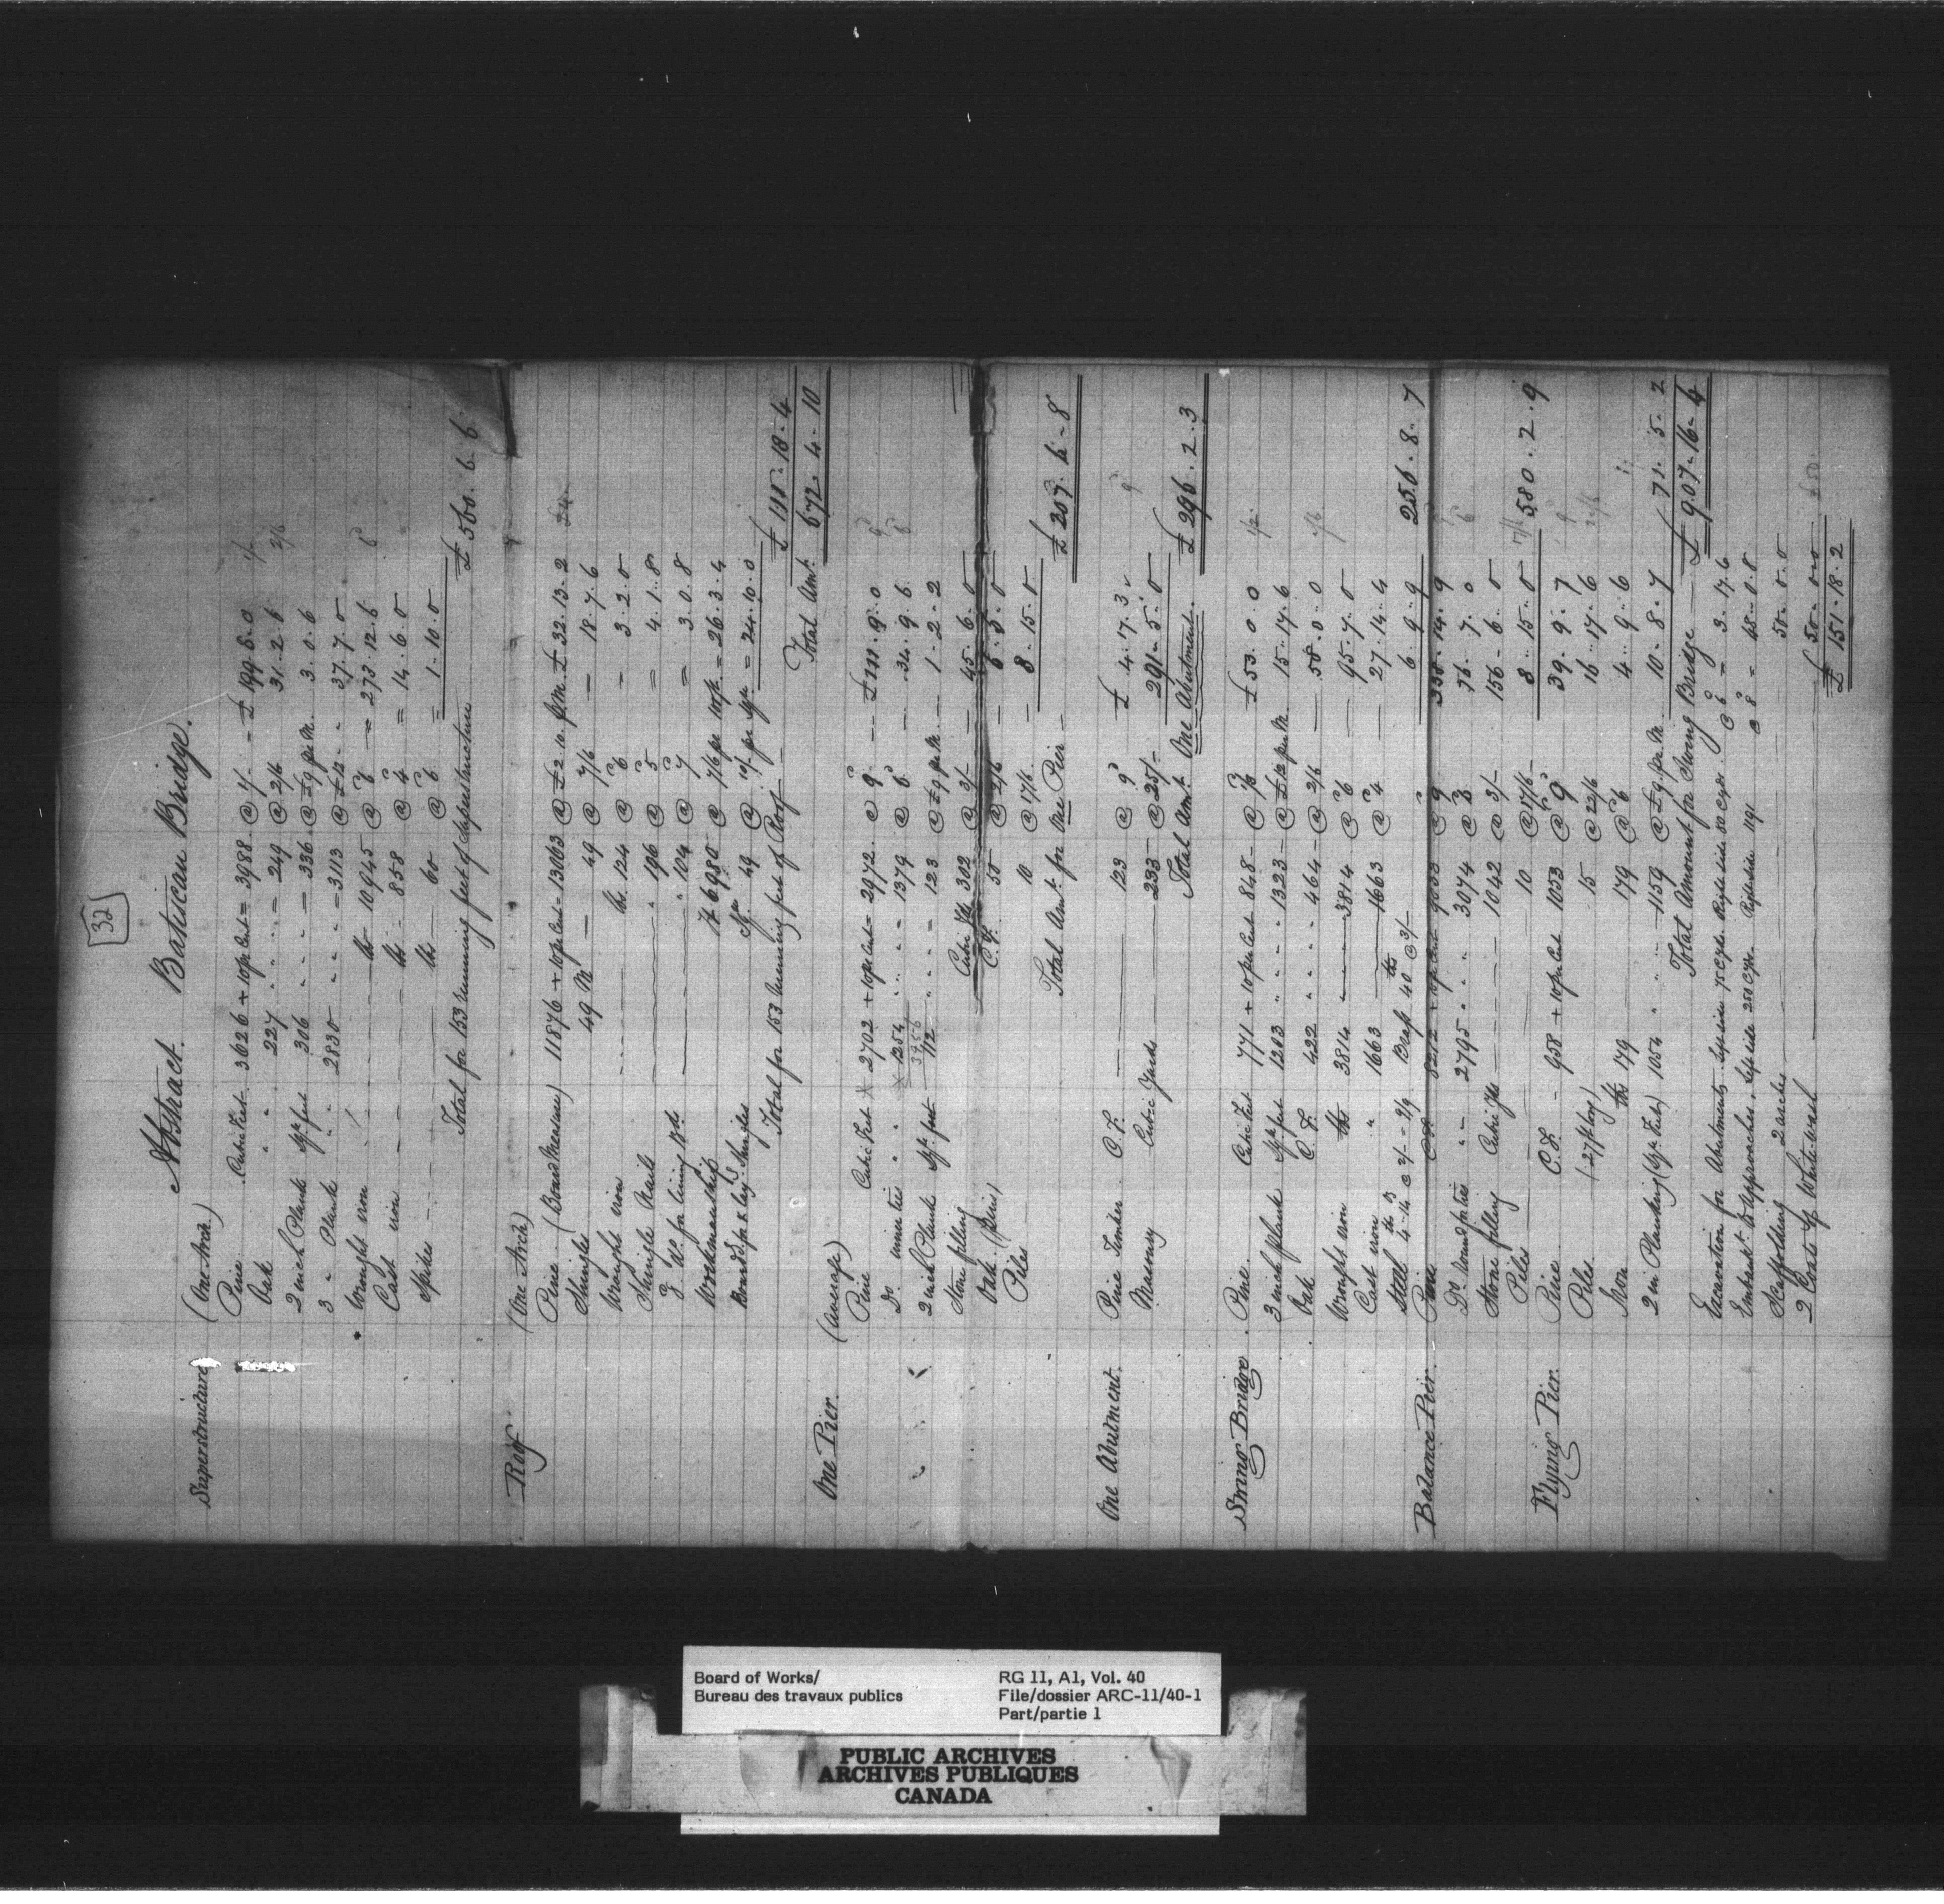 32
Abstract. Batiscan Bridge.
Superstructure (One Arch)
Pine Cubic Feet 3626 + 10 per Cent = 3988 @ 1/ – £ 199.8.0 1/
Oak " " 227 " " " = 249 @ 2/6 31.2.6 2/6
2 inch Plank Sqr feet 306 " " " = 336 @ £9 per M. 3.0.6
3 " Plank " " 2830 " " " = 3113 @ £12 " " 37.7.0
Wrought iron lbs 10945 @ 6d = 273.12.6 6d
Cast iron lbs 858 @ 4d = 14.6.0
Spikes lbs 60 @ 6d = 1.10.0
Total for 153 running feet of Superstructure £ 560.6.6
Roof (One Arch)
Pine (Board Measure) 11876 + 10 per Cent = 13063 @ £2.10 p. M. £ 32.13.2 £4
Shingles 49 M — 49 @ 7/6 — 18.7.6
Wrought iron lbs. 124 @ 6d – 3.2.0
Shingle Nails " 196 @ 5d = 4.1.8
3d do. for lining Bds. " 104 @ 7d = 3.0.8
Workmanship ft 6980 @ 7/6 per 10 ft. = 26.3.4
Boards for & lay.g Shingles Sqrs 49 @ 10/- per Sqre = 24.10.0
Total for 153 running feet of Roof — £ 118.18.4
Total Amt. 672.4.10
One Pier (average)
Pine Cubic Feet × 2702 + 10 per Cent = 2972 @ 9d — £ 111.9.0 9d
Do. inin ties " " × 1254 " " " = 1379 @ 6d — 34.9.6 6d
3956
2 inch Plank Sqr. feet 112 " " " = 123 @ £9 per M. — 1.2.2
Stone filling Cubic Yds 302 @ 3/ — 45.6.0
Oak (Pins) C.F. 50 @ 2/6 — 6.5.0
Piles 10 @ 17/6 — 8.15.0
Total Amt. for One Pier — £ 207.6.8
One Abutment. Pine Timber C.F. — 123 @ 9d £ 4.7.3 9d
Masonry Cubic Yards — 233 @ 25/- 291.5.0
Total Amt. One Abutment. £ 296.2.3
Swing Bridge. Pine Cubic Feet 771 + 10 per Cent 848 – @ 1/3 £ 53.0.0 1/2
3 inch plank Sqr feet 1203 " " " 1323 – @ £12 per M. 15.17.6
Oak C.F. 422 " " " 464 – @ 2/6 — 58.0.0 2/6
Wrought iron lbs 3814 — 3814 @ 6d — 95.7.0
Cast iron " 1663 — 1663 @ 4d — 27.14.4
Steel 4.14 @ 2/ = 9/9 Brass 40 lbs @ 3/– 6.9.9 256.8.7
Balance Pier. Pine C.F. 8212 + 10 per Cent 9033 @ 9d 338.14.9
Do. Round for ties " " 2795 " " " 3074 @ 6d 76.7.0 6d
Stone filling Cubic Yds — 1042 @ 3/– 156.6.0
Piles — 10 @ 17/6 – 8.15.0 17/6 580.2.9
Flying Pier. Pine C.F. – 958 + 10 per Cent 1053 @ 9d 39.9.7 9d
Piles (27 ft long) 15 @ 22/6 16.17.6 22/6
Iron lbs 179 179 @ 6d 4.9.6
2 in Planking (Sqr Feet) 1054 " " " 1159 @ £9 per M. 10.8.7 71.5.2
Total Amount for Swing Bridge — £ 907.16.4
Excavation for Abutments. Left side 75 C.yds. Right side 80 C.yds. @ 6d = 3.17.6
Embankt. to Approaches. Left side 250 C.yds. Right side 1191 @ 8d = 48.0.8
Scaffolding 2 arches 50.0.0
2 Coats of Whitewash 50.0.0 £50
£ 151.18.2
Board of Works/
Bureau des travaux publics
RG 11, A1, Vol. 40
File/dossier ARC-11/40-1
Part/partie 1
PUBLIC ARCHIVES
ARCHIVES PUBLIQUES
CANADA